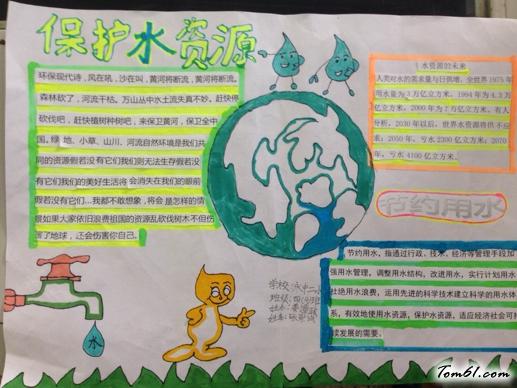 保护水资源
环保现代诗，风在吼，沙在叫，黄河将断流，黄河将断流。
森林砍了，河流干枯。万山丛中水土流失真不妙。赶快停
砍伐吧，赶快植树种树吧，来保卫黄河，保卫全中
国。绿地、小草、山川、河流自然环境是我们共
同的资源假若没有它们我们则无法生存假若没
有它们我们的美好生活将会消失在我们的眼前
假若没有它们…我都不敢想象，将会是怎样的情
景如果大家依旧浪费祖国的资源乱砍伐树木不但伤
害了地球，还会伤害你自己。
水资源的未来
人类对水的需求量与日俱增，全世界1975年
用水量为3万亿立方米。1994年为4.3万
亿立方米，2000年为7万亿立方米。有人
分析，2030年以后，世界水资源将供不应
求：2050年，亏水2300亿立方米；2070
年，亏水4100亿立方米。
节约用水
节约用水，指通过行政、技术、经济等管理手段加
强用水管理，调整用水结构，改进用水，实行计划用水
杜绝用水浪费，运用先进的科学技术建立科学的用水体
系，有效地使用水资源，保护水资源，适应经济社会可持
续发展的需要。
学校：
班级：
姓名：
水
Tom61.com